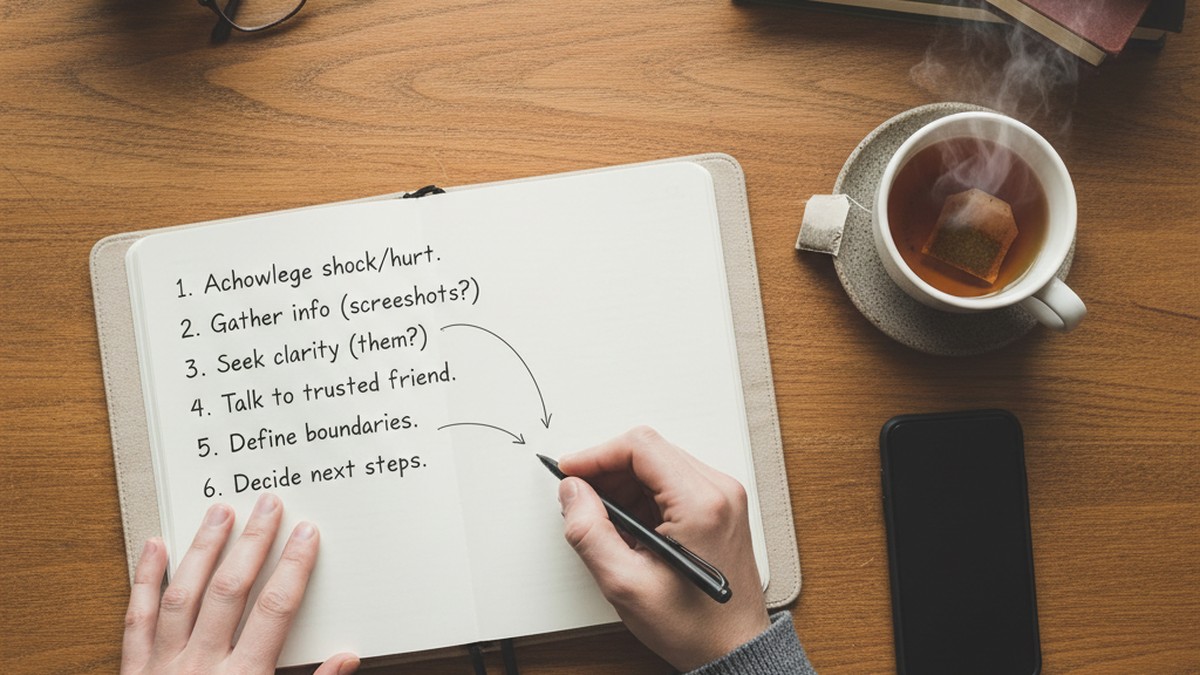 1. Achowlege shock/hurt.
2. Gather info (screeshots?)
3. Seek clarity (them?)
4. Talk to trusted friend.
5. Define boundaries.
6. Decide next steps.